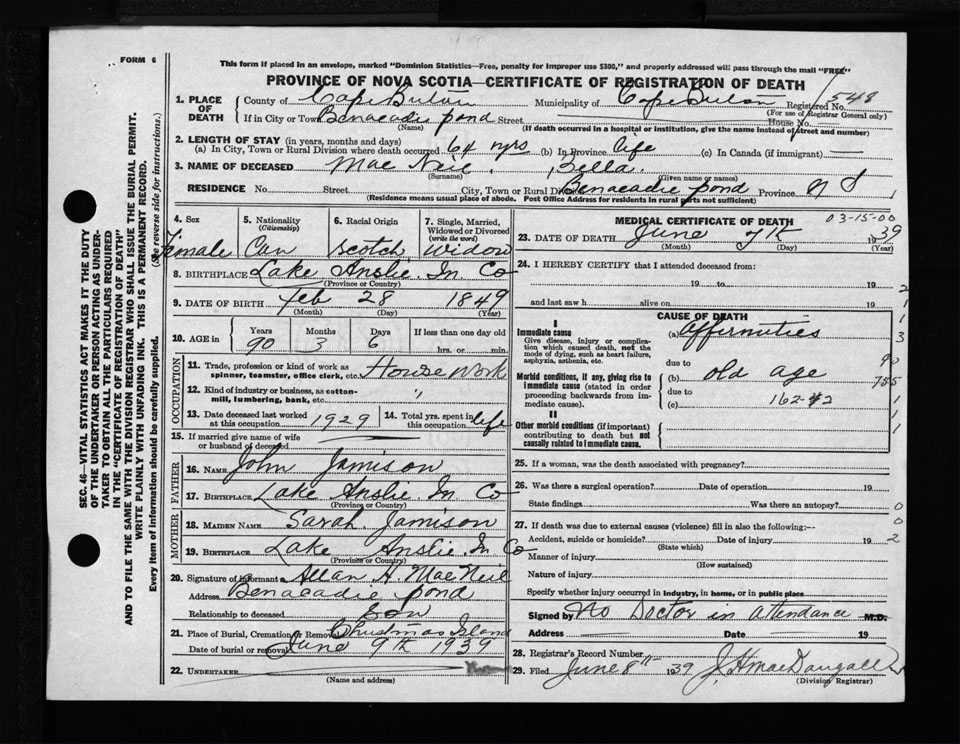 FORM 6
This form if placed in an envelope, marked "Dominion Statistics—Free, penalty for improper use $300," and properly addressed will pass through the mail "FREE"
PROVINCE OF NOVA SCOTIA—CERTIFICATE OF REGISTRATION OF DEATH
SEC. 46—VITAL STATISTICS ACT MAKES IT THE DUTY
OF THE UNDERTAKER OR PERSON ACTING AS UNDER-
TAKER TO OBTAIN ALL THE PARTICULARS REQUIRED
IN THE "CERTIFICATE OF REGISTRATION OF DEATH"
AND TO FILE THE SAME WITH THE DIVISION REGISTRAR WHO SHALL ISSUE THE BURIAL PERMIT.
WRITE PLAINLY WITH UNFADING INK. THIS IS A PERMANENT RECORD.
Every item of information should be carefully supplied. (See reverse side for instructions.)
1. PLACE OF DEATH County of Cape Breton Municipality of Cape Breton Registered No. 548
(For use of Registrar General only)
If in City or Town Benacadie Pond Street House No.
(Name) (If death occurred in a hospital or institution, give the name instead of street and number)
2. LENGTH OF STAY (in years, months and days)
(a) In City, Town or Rural Division where death occurred 64 yrs (b) In Province life (c) In Canada (if immigrant) —
3. NAME OF DECEASED Mac Neil, Bella
(Surname) (Given name or names)
RESIDENCE No. Street City, Town or Rural Div Benacadie pond Province N S
(Residence means usual place of abode. Post Office Address for residents in rural parts not sufficient)
4. Sex Female
5. Nationality (Citizenship) Can
6. Racial Origin Scotch
7. Single, Married, Widowed or Divorced (write the word) Widow
8. BIRTHPLACE Lake Anslie In Co
(Province or Country)
9. DATE OF BIRTH Feb 28 1849
(Month) (Day) (Year)
10. AGE in Years 90 Months 3 Days 6 If less than one day old
hrs. or min.
OCCUPATION
11. Trade, profession or kind of work as spinner, teamster, office clerk, etc. House Work
12. Kind of industry or business, as cotton-mill, lumbering, bank, etc. "
13. Date deceased last worked at this occupation 1929 14. Total yrs. spent in this occupation life
15. If married give name of wife or husband of deceased
FATHER
16. NAME John Jamison
17. BIRTHPLACE Lake Anslie In Co
(Province or Country)
MOTHER
18. MAIDEN NAME Sarah Jamison
19. BIRTHPLACE Lake Anslie. In Co
(Province or Country)
20. Signature of informant Allan A. MacNeil
Address Benacadie pond
Relationship to deceased Son
21. Place of Burial, Cremation or Removal Christmas Island
Date of burial or removal June 9th 1939
22. UNDERTAKER
(Name and address)
MEDICAL CERTIFICATE OF DEATH 03-15-00
23. DATE OF DEATH June 7th 1939
(Month) (Day) (Year)
24. I HEREBY CERTIFY that I attended deceased from:
19 to 19
and last saw h alive on 19
CAUSE OF DEATH
I
Immediate cause (a) Affirmities
Give disease, injury or complication which caused death, not the mode of dying, such as heart failure, asphyxia, asthenia, etc.
due to
Morbid conditions, if any, giving rise to immediate cause (stated in order proceeding backwards from immediate cause) (b) old age
due to
(c) 162-#2
II
Other morbid conditions (if important) contributing to death but not causally related to immediate cause.
2
1
1
3
90
755
1
1
1
25. If a woman, was the death associated with pregnancy?
26. Was there a surgical operation? Date of operation 19
State findings Was there an autopsy? 0
27. If death was due to external causes (violence) fill in also the following:— 0
Accident, suicide or homicide? Date of injury 19 2
(State which)
Manner of injury
(How sustained)
Nature of injury
Specify whether injury occurred in industry, in home, or in public place
Signed by No Doctor in attendance M.D.
Address Date 19
28. Registrar's Record Number
29. Filed June 8th 1939 J. H MacDougall
(Division Registrar)